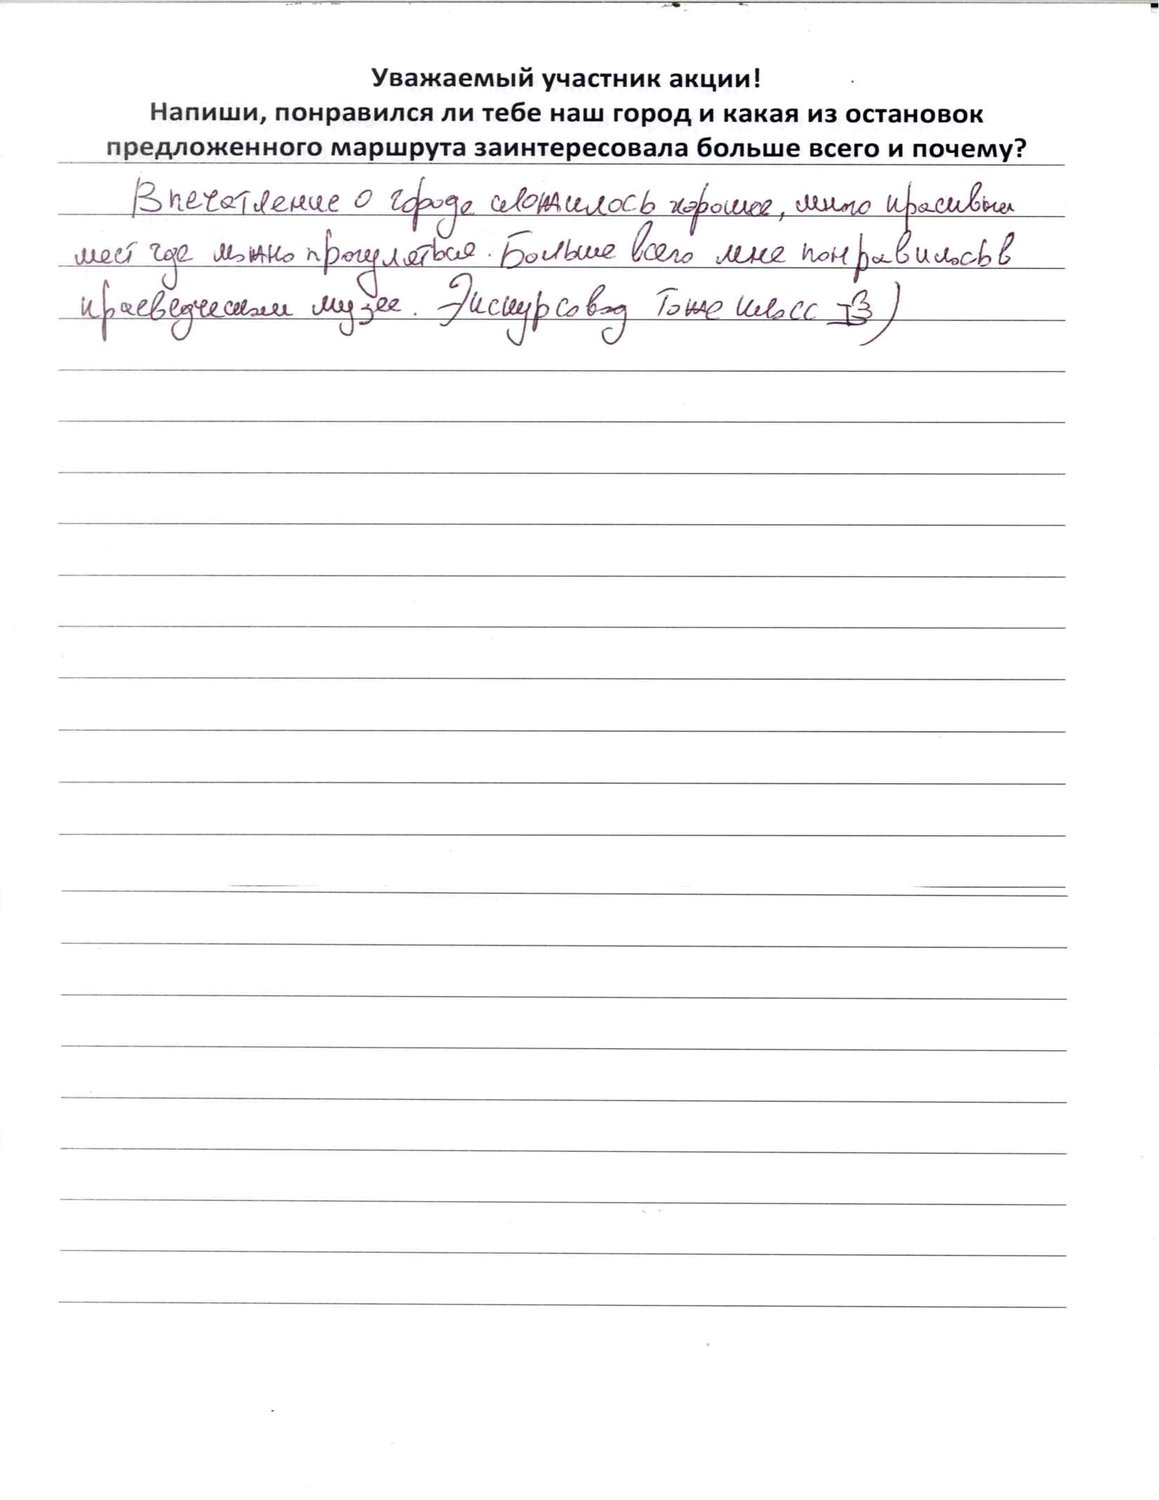 Уважаемый участник акции!
Напиши, понравился ли тебе наш город и какая из остановок
предложенного маршрута заинтересовала больше всего и почему?
Впечатление о городе сложилось хорошее, много красивых
мест где можно прогуляться. Больше всего мне понравилось в
краеведческом музее. Экскурсовод тоже класс